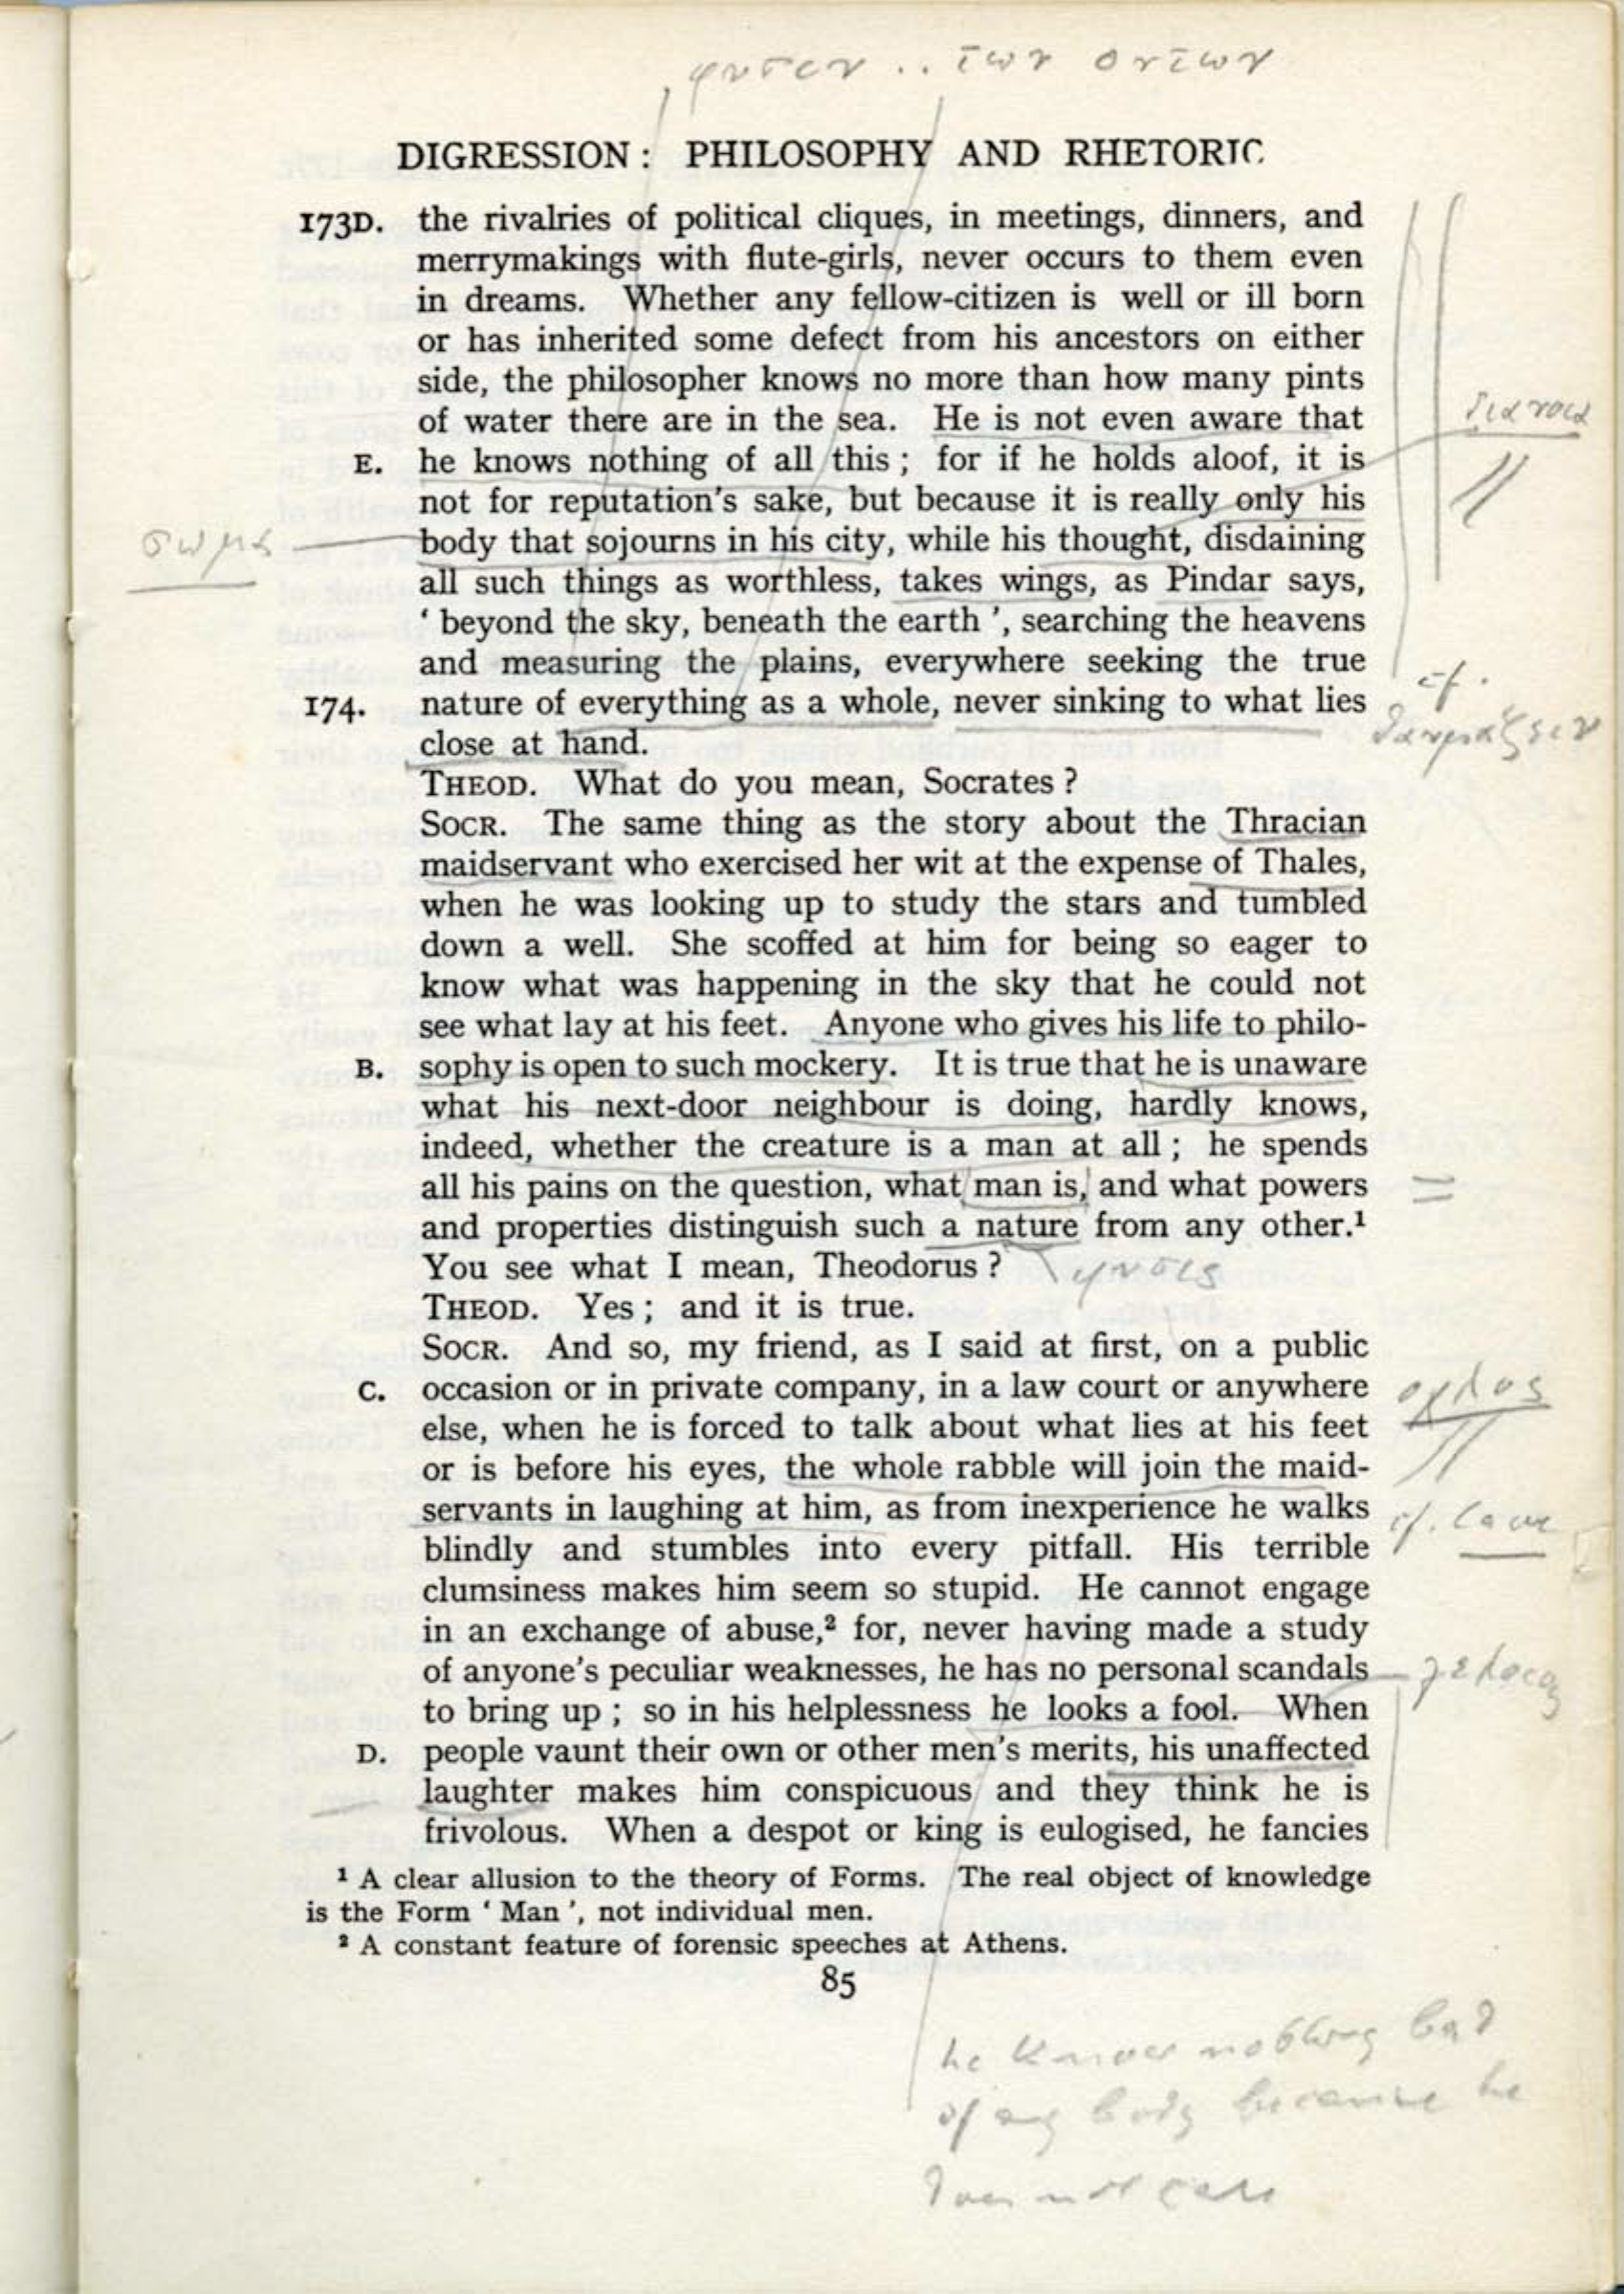 φυσιν .. των οντων
DIGRESSION: PHILOSOPHY AND RHETORIC
173D. the rivalries of political cliques, in meetings, dinners, and
merrymakings with flute-girls, never occurs to them even
in dreams. Whether any fellow-citizen is well or ill born
or has inherited some defect from his ancestors on either
side, the philosopher knows no more than how many pints
of water there are in the sea. He is not even aware that
διανοια
E. he knows nothing of all this; for if he holds aloof, it is
not for reputation's sake, but because it is really only his
σωμα
body that sojourns in his city, while his thought, disdaining
all such things as worthless, takes wings, as Pindar says,
‘beyond the sky, beneath the earth’, searching the heavens
and measuring the plains, everywhere seeking the true
cf.
174. nature of everything as a whole, never sinking to what lies
θαυμαζειν
close at hand.
THEOD. What do you mean, Socrates?
SOCR. The same thing as the story about the Thracian
maidservant who exercised her wit at the expense of Thales,
when he was looking up to study the stars and tumbled
down a well. She scoffed at him for being so eager to
know what was happening in the sky that he could not
see what lay at his feet. Anyone who gives his life to philo-
B. sophy is open to such mockery. It is true that he is unaware
what his next-door neighbour is doing, hardly knows,
indeed, whether the creature is a man at all; he spends
all his pains on the question, what man is, and what powers
and properties distinguish such a nature from any other.¹
You see what I mean, Theodorus?
φυσις
THEOD. Yes; and it is true.
SOCR. And so, my friend, as I said at first, on a public
C. occasion or in private company, in a law court or anywhere
οχλος
else, when he is forced to talk about what lies at his feet
or is before his eyes, the whole rabble will join the maid-
servants in laughing at him, as from inexperience he walks
cf. Cave
blindly and stumbles into every pitfall. His terrible
clumsiness makes him seem so stupid. He cannot engage
in an exchange of abuse,² for, never having made a study
of anyone's peculiar weaknesses, he has no personal scandals
to bring up; so in his helplessness he looks a fool. When
D. people vaunt their own or other men's merits, his unaffected
laughter makes him conspicuous and they think he is
frivolous. When a despot or king is eulogised, he fancies
¹ A clear allusion to the theory of Forms. The real object of knowledge
is the Form ‘Man’, not individual men.
² A constant feature of forensic speeches at Athens.
85
he knows nothing bad
of any body because he
does not care